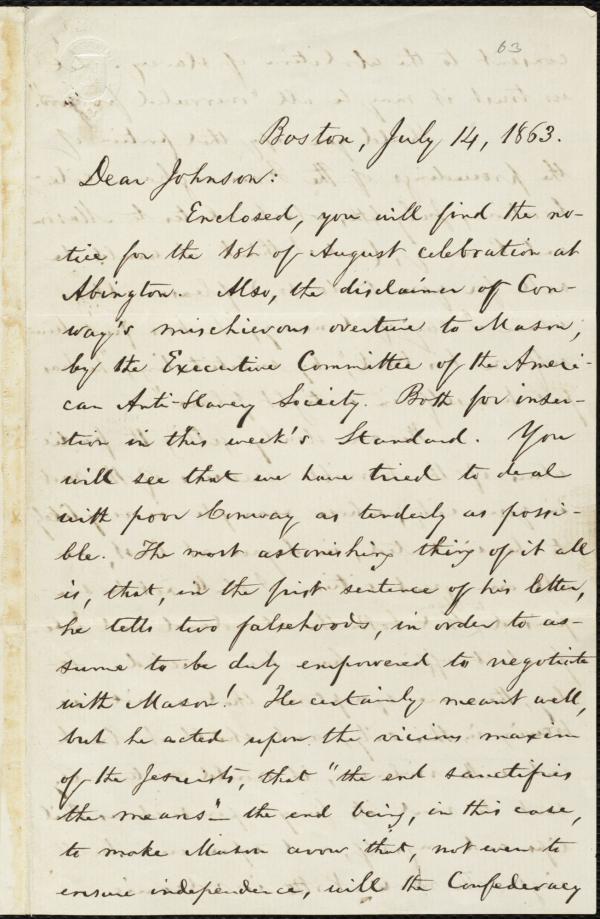 63
Boston, July 14, 1863.
Dear Johnson:
Enclosed, you will find the no-
tice for the 1st of August celebration at
Abington. Also, the disclaimer of Con-
way's mischievous overture to Mason,
by the Executive Committee of the Ameri-
can Anti-Slavery Society. Both for inser-
tion in this week's Standard. You
will see that we have tried to deal
with poor Conway as tenderly as possi-
ble. The most astonishing thing of it all
is, that, in the first sentence of his letter,
he tells two falsehoods, in order to as-
sume to be duly empowered to negotiate
with Mason! He certainly meant well,
but he acted upon the vicious maxim
of the Jesuists, that "the end sanctifies
the means"—the end being, in this case,
to make Mason avow that, not even to
ensure independence, will the Confederacy